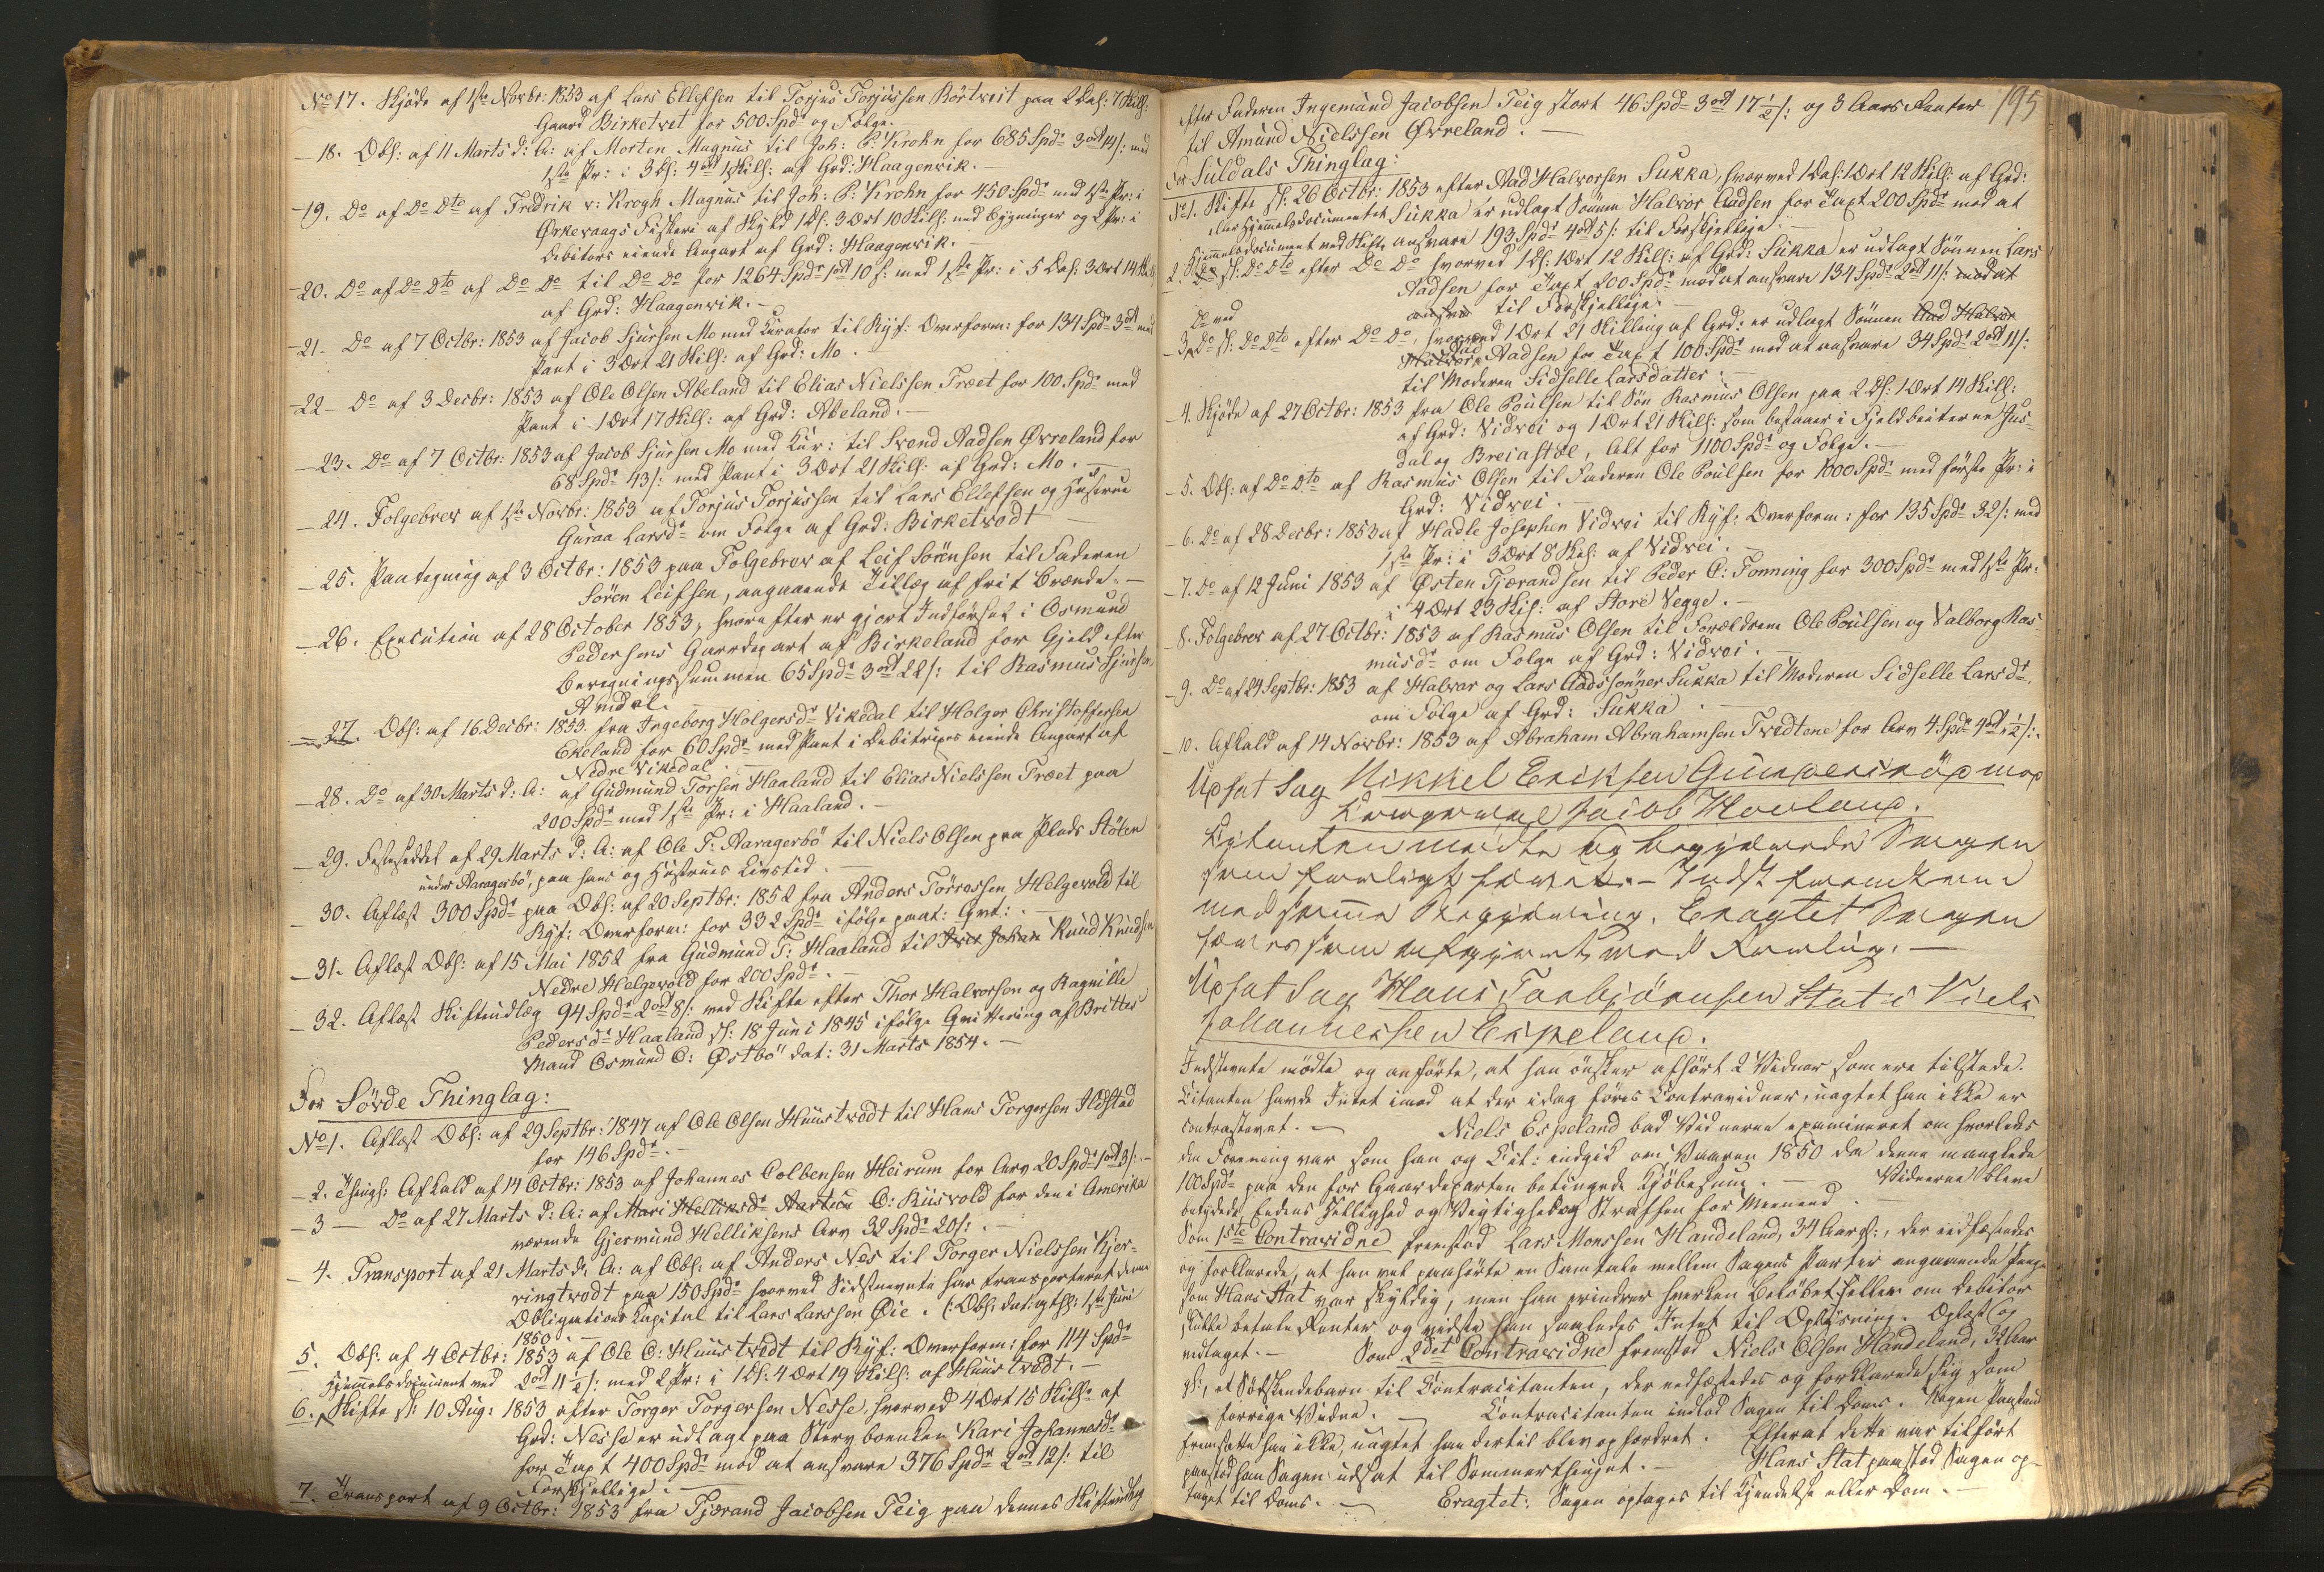 No 17. Skjøde af 1ste Novbr: 1853 af Lars Ellefsen til Torjus Torjussen Rörtveit paa 2 Dal: 7 Skill:
Gaard Birketvet for 500 Spdr og Folge.
- 18. Obl: af 11 Marts d: A: af Morten Magnus til Joh: P: Krohn for 685 Spdr 3 ort 14 s: med
1ste Pr: i 3 Dl: 4 ort 1 Skill: af Grd: Haagenvik.
- 19. Do af Do Dto af Fredrik v: Krogh Magnus til Joh: P: Krohn for 450 Spdr med 1ste Pr: i
Ørkevaags Fiskeri af Skyld 1 Dl: 3 Ort 10 Skill: med Bygninger og 2 Pr: i
Debitors eiende Anpart af Grd: Haagenvik.
- 20. Do af Do Dto af Do Do til Do Do for 1264 Spdr 1 ort 10 s: med 1ste Pr: i 5 Dal: 3 Ort 14 Skill
af Grd: Haagenvik.
- 21- Do af 7 Octbr: 1853 af Jacob Sjursen Mo med Curator til Ryf: Overform: for 134 Spdr 3 ort med
Pant i 3 Ort 21 Skill: af Grd: Mo.
- 22- Do af 3 Decbr: 1853 af Ole Olsen Abeland til Elias Nielssen Træet for 100 Spdr med
Pant i 1 Ort 17 Skill: af Grd: Abeland.
- 23. Do af 7 Octbr: 1853 af Jacob Sjursen Mo med Cur: til Svend Aadsen Øvreland for
68 Spdr 43 s: med Pant i 3 Ort 21 Skill: af Grd: Mo.
- 24. Folgebrev af 1ste Novbr: 1853 af Torjus Torjussen til Lars Ellefsen og Hustrue
Guraa Larsdr om Folge af Grd: Birketvedt
- 25. Paategning af 3 Octbr: 1853 paa Folgebrev af Leif Sorensen til Faderen
Soren Leifsen, angaaende Tillæg af frit Brænde.
- 26. Execution af 28 October 1853, hvorefter er gjort Indførsel i Osmund
Pedersens Gaardepart af Birkeland for Gjeld efter
Beregningssummen 65 Spdr 3 ort 22 s: til Rasmus Sjursen
Amdal.
- 27. Obl: af 16 Decbr: 1853 fra Ingeborg Holgersdr Vikedal til Holger Christoffersen
Ekeland for 60 Spdr med Pant i Debitrixes eiende Anpart af
Nedre Vikedal.
- 28. Do af 30 Marts d: A: af Gudmund Torsen Haaland til Elias Nielssen Træet paa
200 Spdr med 1ste Pr: i Haaland.
- 29. Festeseddel af 29 Marts d: A: af Ole T: Aaragerbö til Niels Olsen paa Plads Stölen
under Aaragerbö, paa hans og Hustrues Livstid.
- 30. Aflæst 300 Spdr paa Obl: af 20 Septbr: 1852 fra Anders Törressen Helgevold til
Ryf: Overform: for 332 Spdr ifølge paat: Qvt:.
- 31. Aflæst Obl: af 15 Mai 1852 fra Gudmund T: Haaland til Johan Knud Knudsen
Nedre Helgevold for 200 Spdr.
- 32. Aflæst Skifteudlæg 94 Spdr 2 ort 8 s: ved Skifte efter Thor Halvorson og Ragnille
Pedersdr Haaland sl: 18 Juni 1845 ifølge Qvittering af Brittes
Mand Osmund O: Østbö dat: 31 Marts 1854.
For Sövde Thinglag:
No 1. Aflæst Obl: af 29 Septbr: 1847 af Ole Olsen Huustvedt til Hans Torgersen Ilstad
for 146 Spdr.
- 2. Thingl: Afkald af 14 Octbr: 1853 af Johannes Colbensen Heirum for Arv 20 Spdr 1 ort 3 s:
- 3 - Do af 27 Marts d: A: af Mari Helliksdr O: Kiisvold for den i Amerika
værende Gjermund Helliksens Arv 32 Spdr 20 s:.
- 4. Transport af 21 Marts d: A: af Obl: af Anders Nes til Torger Nielssen Kjer-
ringtvedt paa 150 Spdr hvorved Sidstnævnte har transporteret denne
Obligations Kapital til Lars Larssen Öie. (: Obl: dat: og thl: 1ste Juni
1850.
5. Obl: af 4 Octbr: 1853 af Ole O: Huustvedt til Ryf: Overform: for 114 Spdr
2 ort 11½ s: med 2 Pr: i 1 Dl: 4 Ort 19 Skill: af Huustvedt.
Hjemmelsdocument ved
6. Skifte sl: 10 Aug: 1853 efter Torger Torgersen Nesse, hvorved 4 Ort 15 Skill: af
Grd: Nesse er udlagt paa Stervboenken Kari Johannesdr
for Taxt 400 Spdr mod at ansvare 376 Spdr 2 ort 12 s: til
Forskjellige.
7. Transport af 9 Octbr: 1853 fra Tjærand Jacobsen Teig paa dennes Skifteudlæg
195
efter Faderen Ingemund Jacobsen Teig stort 46 Spdr 3 ort 17½ s: og 3 Aars Renter
til Amund Nielssen Øvreland.
For Suldals Thinglag:
No 1. Skifte sl: 26 Octbr: 1853 efter Aad Halvorsen Sukka, hvorved 1 Dal: 1 Ort 12 Skill: af Grd:
Sukka er udlagt Sönnen Halvor Aadsen for Taxt 200 Spdr mod at
Hjemmelsdocument ved Skifte ansvare 193 Spdr 4 ort 5 s: til Forskjellige.
2. Do sl: Do Dto efter Do Do hvorved 1 Dl: 1 Ort 12 Skill: af Grd: Sukka er udlagt Sönnen Lars
Aadsen for Taxt 200 Spdr mod at ansvare 134 Spdr 2 ort 11 s: mod at
til Forskjellige.
Do ved
- 3. Do sl: Do Dto efter Do Do, hvorved 1 Ort 21 Skilling af Grd: er udlagt Sönnen Aad Halvor
Halvor Aad Aadsen for Taxt 100 Spdr mod at ansvare 34 Spdr 2 ort 11 s:
til Moderen Sidselle Larsdatter.
- 4. Skjøde af 27 Octbr: 1853 fra Ole Poulsen til Søn Rasmus Olsen paa 2 Dl: 1 Ort 14 Skill:
af Grd: Vidvei og 1 Ort 21 Skill: som bestaaer i Fjeldbeiterne Jus-
dal og Breiastøl, Alt for 1100 Spdr og Folge.
- 5. Obl: af Do Dto af Rasmus Olsen til Faderen Ole Poulsen for 1000 Spdr med første Pr: i
Grd: Vidvei.
- 6. Do af 28 Decbr: 1853 af Hadle Josephsen Vidvei til Ryf: Overform: for 135 Spdr 32 s: med
1ste Pr: i 3 Ort 8 Skil: af Vidvei.
- 7. Do af 12 Juni 1853 af Østen Tjærandsen til Peder C: Tonning for 300 Spdr med 1ste Pr:
i 4 Ort 23 Skil: af Store Vegge.
- 8. Folgebrev af 27 Octbr: 1853 af Rasmus Olsen til Forældrene Ole Poulsen og Valborg Ras-
musdr om Folge af Grd: Vidvei.
- 9. Do af 24 Septbr: 1853 af Halvor og Lars Aadssønner Sukka til Moderen Sidselle Larsdr
om Folge af Grd: Sukka.
- 10. Afkald af 14 Novbr: 1853 af Abraham Abrahamsen Tvedtene for Arv 4 Spdr 4 ort ½ s:.
Upsat Sag Mikkel Eriksen
Jacob Hovland.
Citanten mødte og begjærede Sagen
med samme Begjæring. Eragtet Sagen
Upsat Sag Hans Torbjörnsen Stat i Niels
Johannessen Espeland.
Indstevnte mödte og anførte, at han önsker afhört 2 Vidner som ere tilstede.
Citanten havde Intet imod at der idag føres Contravidner, uagtet han ikke er
contrastevnt. — Niels Espeland bad Vidnerne examineret om hvorledes
den Forening var som han og Cit: indgik om Vaaren 1850 da denne manglede
100 Spdr paa den for Gaardeparten betingede Kjöbesum. — Vidnerne bleve
betydede Eedens Hellighed og Vigtighed og Straffen for Meeneed.
Som 1ste Contravidne fremstod Lars Monssen Handeland, 34 Aar gl:, der eedfæstedes
og forklarede, at han vel paahörte en Samtale mellem Sagens Parter angaaende Penge
som Hans Stat var skyldig, men han erindrer hverken Belöbet heller om Debitor
skulde betale Renter og vidste han saaledes Intet til Oplysning. Oplæst og
vedtaget. — Som 2det Contravidne fremstod Niels Olsen Handeland, 32 Aar
gl:, et Södskendebarn til Contracitanten, der eedfæstedes og forklarede sig som
forrige Vidne. — Contracitanten indlod Sagen til Doms. Nogen Paastand
fremsatte han ikke, uagtet han dertil blev opfordret. Efterat dette var tilført
paastod han Sagen udsat til Sommerthinget. — Hans Stat paastod Sagen op-
taget til Doms. — Eragtet: Sagen optages til Kjendelse eller Dom.